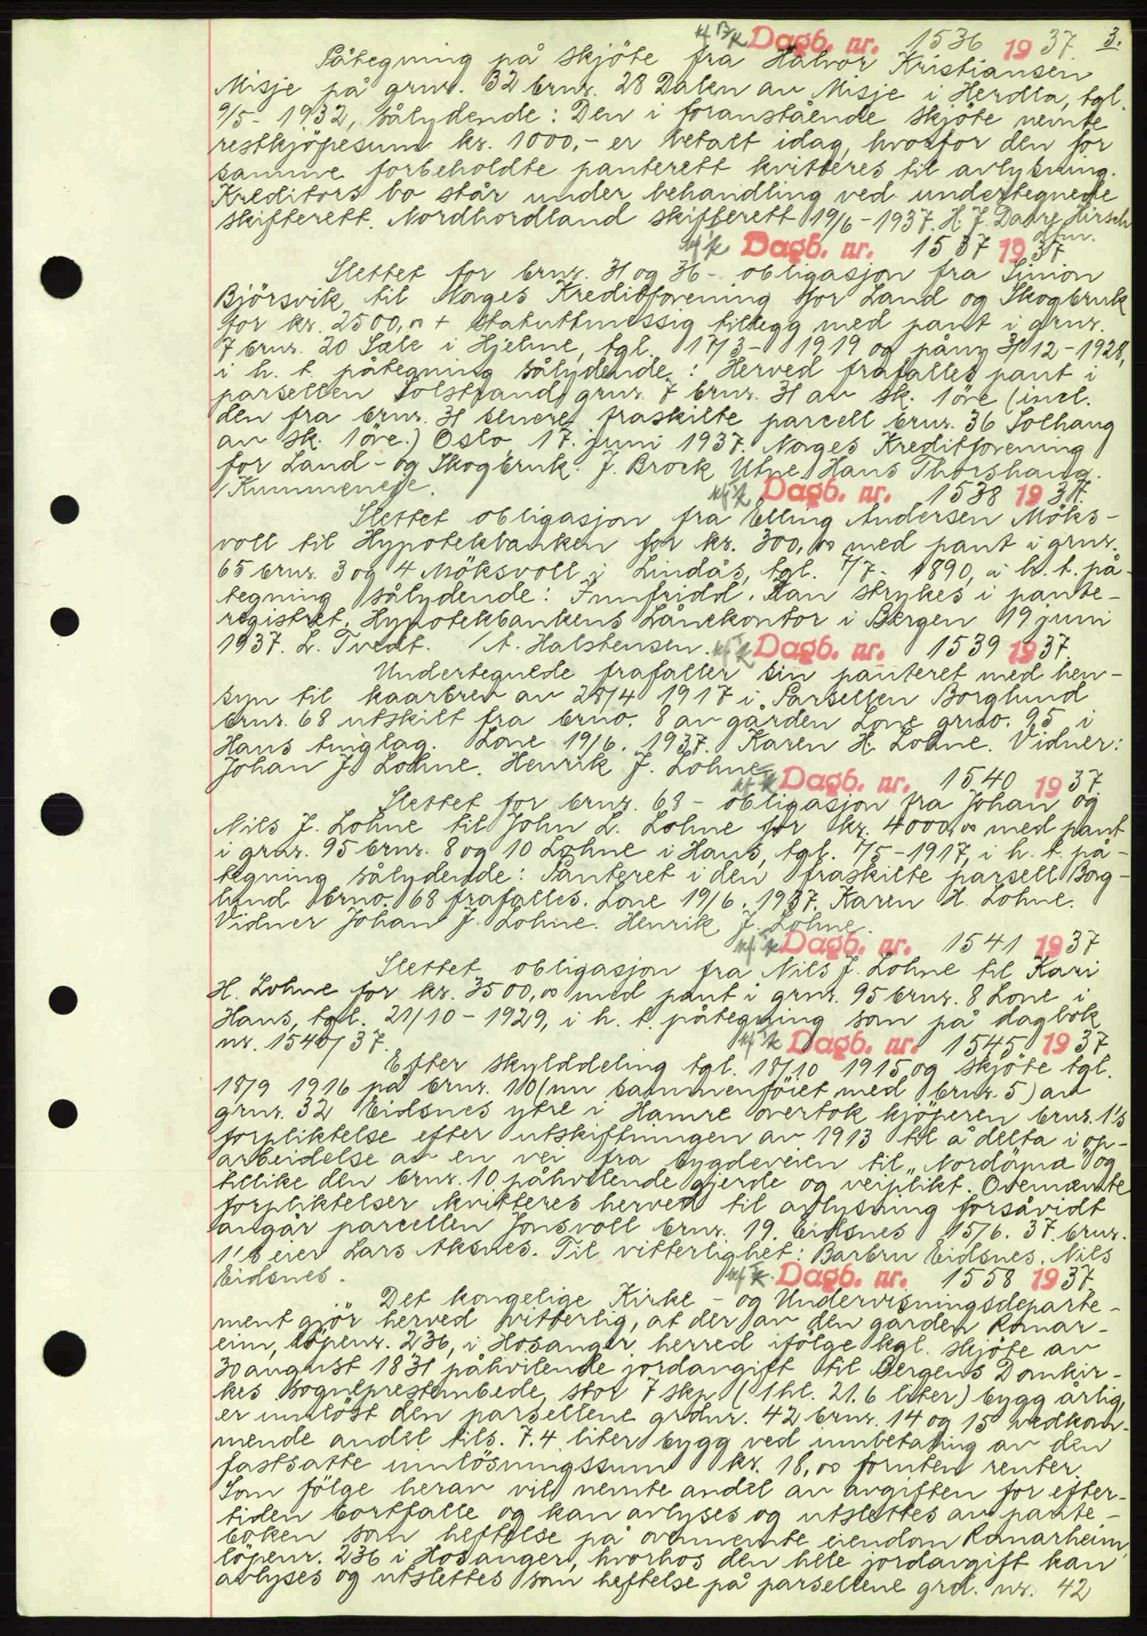 Dagb. nr. 1536 1937. 3.
Påtegning på skjöte fra Halvor Kristiansen
Misje på grnr. 32 brnr. 28 Dalen av Misje i Herdla, tgl.
9/5- 1932, sålydende: Den i foranstående skjöte nevnte
restkjöpesum kr. 1000,- er betalt idag, hvorfor den for
samme forbeholdte panterett kvitteres til avlysning.
Kreditors bo står under behandling ved undertegnede
skifterett. Nordhordland skifterett 19/6-1937. H. J. Darre Hirsch
Dagb. nr. 1537 1937
Slettet for brnr. 31 og 36- obligasjon fra Simon
Björsvik til Norges Kreditforening for Land og Skogbruk
for kr. 2500,00 + statuttmessig tillegg med pant i grnr.
7 brnr. 20 Sæle i Hjelme, tgl. 17/3- 1919 og påny 31/12-1928,
i h. t. påtegning sålydende: Herved frafalles pant i
parsellen Solstrand, grnr. 7 brnr. 31 av sk. 1 öre (incl.
den fra brnr. 31 senere fraskilte parcell brnr. 36 Solhaug
av sk. 1 öre.) Oslo 17. juni 1937. Norges Kreditforening
for Land- og Skogbruk. J. Brock Utne. Hans Thorshaug.
/Kummeneje.
Dagb. nr. 1538 1937.
Slettet obligasjon fra Elling Andersen Möks-
voll til Hypotekbanken for kr. 300,00 med pant i grnr.
65 brnr. 3 og 4 Möksvoll i Lindås, tgl. 7/7- 1890, i h. t. på-
tegning sålydende: Innfridd. Kan strykes i pante-
registret. Hypotekbankens Lånekontor i Bergen 19 juni
1937. L. Tvedt. /A. Halstensen.
Dagb. nr. 1539 1937.
Undertegnede frafaller sin panteret med hen-
syn til kaarbrev av 28/4 1917 i Parsellen Borglund
brnr. 68 utskilt fra brno. 8 av gården Lone grno. 95 i
Haus tinglag. Lone 19/6. 1937. Karen H. Lohne. Vidner:
Johan J. Lohne. Henrik J. Lohne
Dagb. nr. 1540 1937.
Slettet for brnr. 68 - obligasjon fra Johan og
Nils J. Lohne til John L. Lohne for kr. 4000,00 med pant
i grnr. 95 brnr. 8 og 10 Lohne i Haus, tgl. 7/5-1917, i h. t. på-
tegning sålydende: Panteret i den fraskilte parsell Borg-
lund brno. 68 frafalles. Lone 19/6. 1937. Karen H. Lohne.
Vidner Johan J. Lohne. Henrik J. Lohne.
Dagb. nr. 1541 1937
Slettet obligasjon fra Nils J. Lohne til Kari
H. Lohne for kr. 3500,00 med pant i grnr. 95 brnr. 8 Lone i
Haus, tgl. 21/10-1929, i h. t. påtegning som på dagbok
nr. 1540/37.
Dagb. nr. 1545 1937
Efter skylddeling tgl. 18/10 1915 og skjöte tgl.
18/9 1916 på brnr. 10 (nu sammenföiet med brnr. 5) av
grnr. 32 Eidsnes ytre i Hamre overtok kjöperen brnr. 1's
forpliktelse efter utskiftningen av 1913 til å delta i op-
arbeidelse av en vei fra bygdeveien til "Nordöyna" og
tillike den brnr. 10 påhvilende gjerde og veiplikt. Ovennevnte
forpliktelser kvitteres herved til avlysning forsåvidt
angår parcellen Jonsvoll brnr. 19. Eidsnes 15/6. 37. brnr.
1's eier Lars Aksnes. Til vitterlighet: Barbru Eidsnes. Nils
Eidsnes.
Dagb. nr. 1558 1937.
Det kongelige Kirke- og Undervisningsdeparte-
ment gjör herved vitterlig, at der av den gården Romar-
eim, löpenr. 236, i Hosanger herred ifölge kgl. skjöte av
30 august 1831 påhvilende jordavgift til Bergens Domkir-
kes sogneprestembede, stor 7 skp. (1 hl. 21.6 liter) bygg årlig,
er innlöst den parsellene grdnr. 42 brnr. 14 og 15 vedkom-
mende andel tils. 7.4 liter bygg ved innbetaling av den
fastsatte innlösningssum kr. 18,00 foruten renter.
Som fölge herav vil nevnte andel av avgiften for efter-
tiden bortfalle og kan avlyses og utslettes av pante-
böken som heftelse på ovennevnte eiendom Romarheim,
löpenr. 236 i Hosanger, hvorhos den hele jordavgift kan
avlyses og utslettes som heftelse på parsellene grd. nr. 42